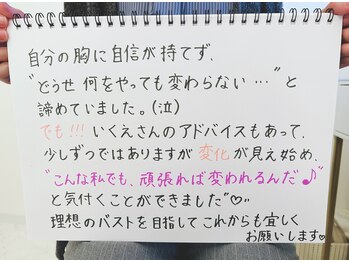 自分の胸に自信が持てず、
"どうせ 何をやっても変わらない…"と
諦めていました。(泣)
でも!!! いくえさんのアドバイスもあって、
少しずつではありますが 変化が見え始め、
"こんな私でも、頑張れば変われるんだ♪"
と気付くことができました"♡"
理想のバストを目指してこれからも宜しく
お願いします♡